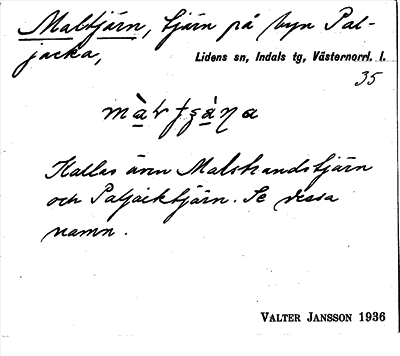 Maltjärn, tjärn på byn Pal-
jacka,
Lidens sn, Indals tg, Västernorrl. l.
35
Kallas även Malstrandstjärn
och Paljacktjärn. Se dessa
namn.
VALTER JANSSON 1936